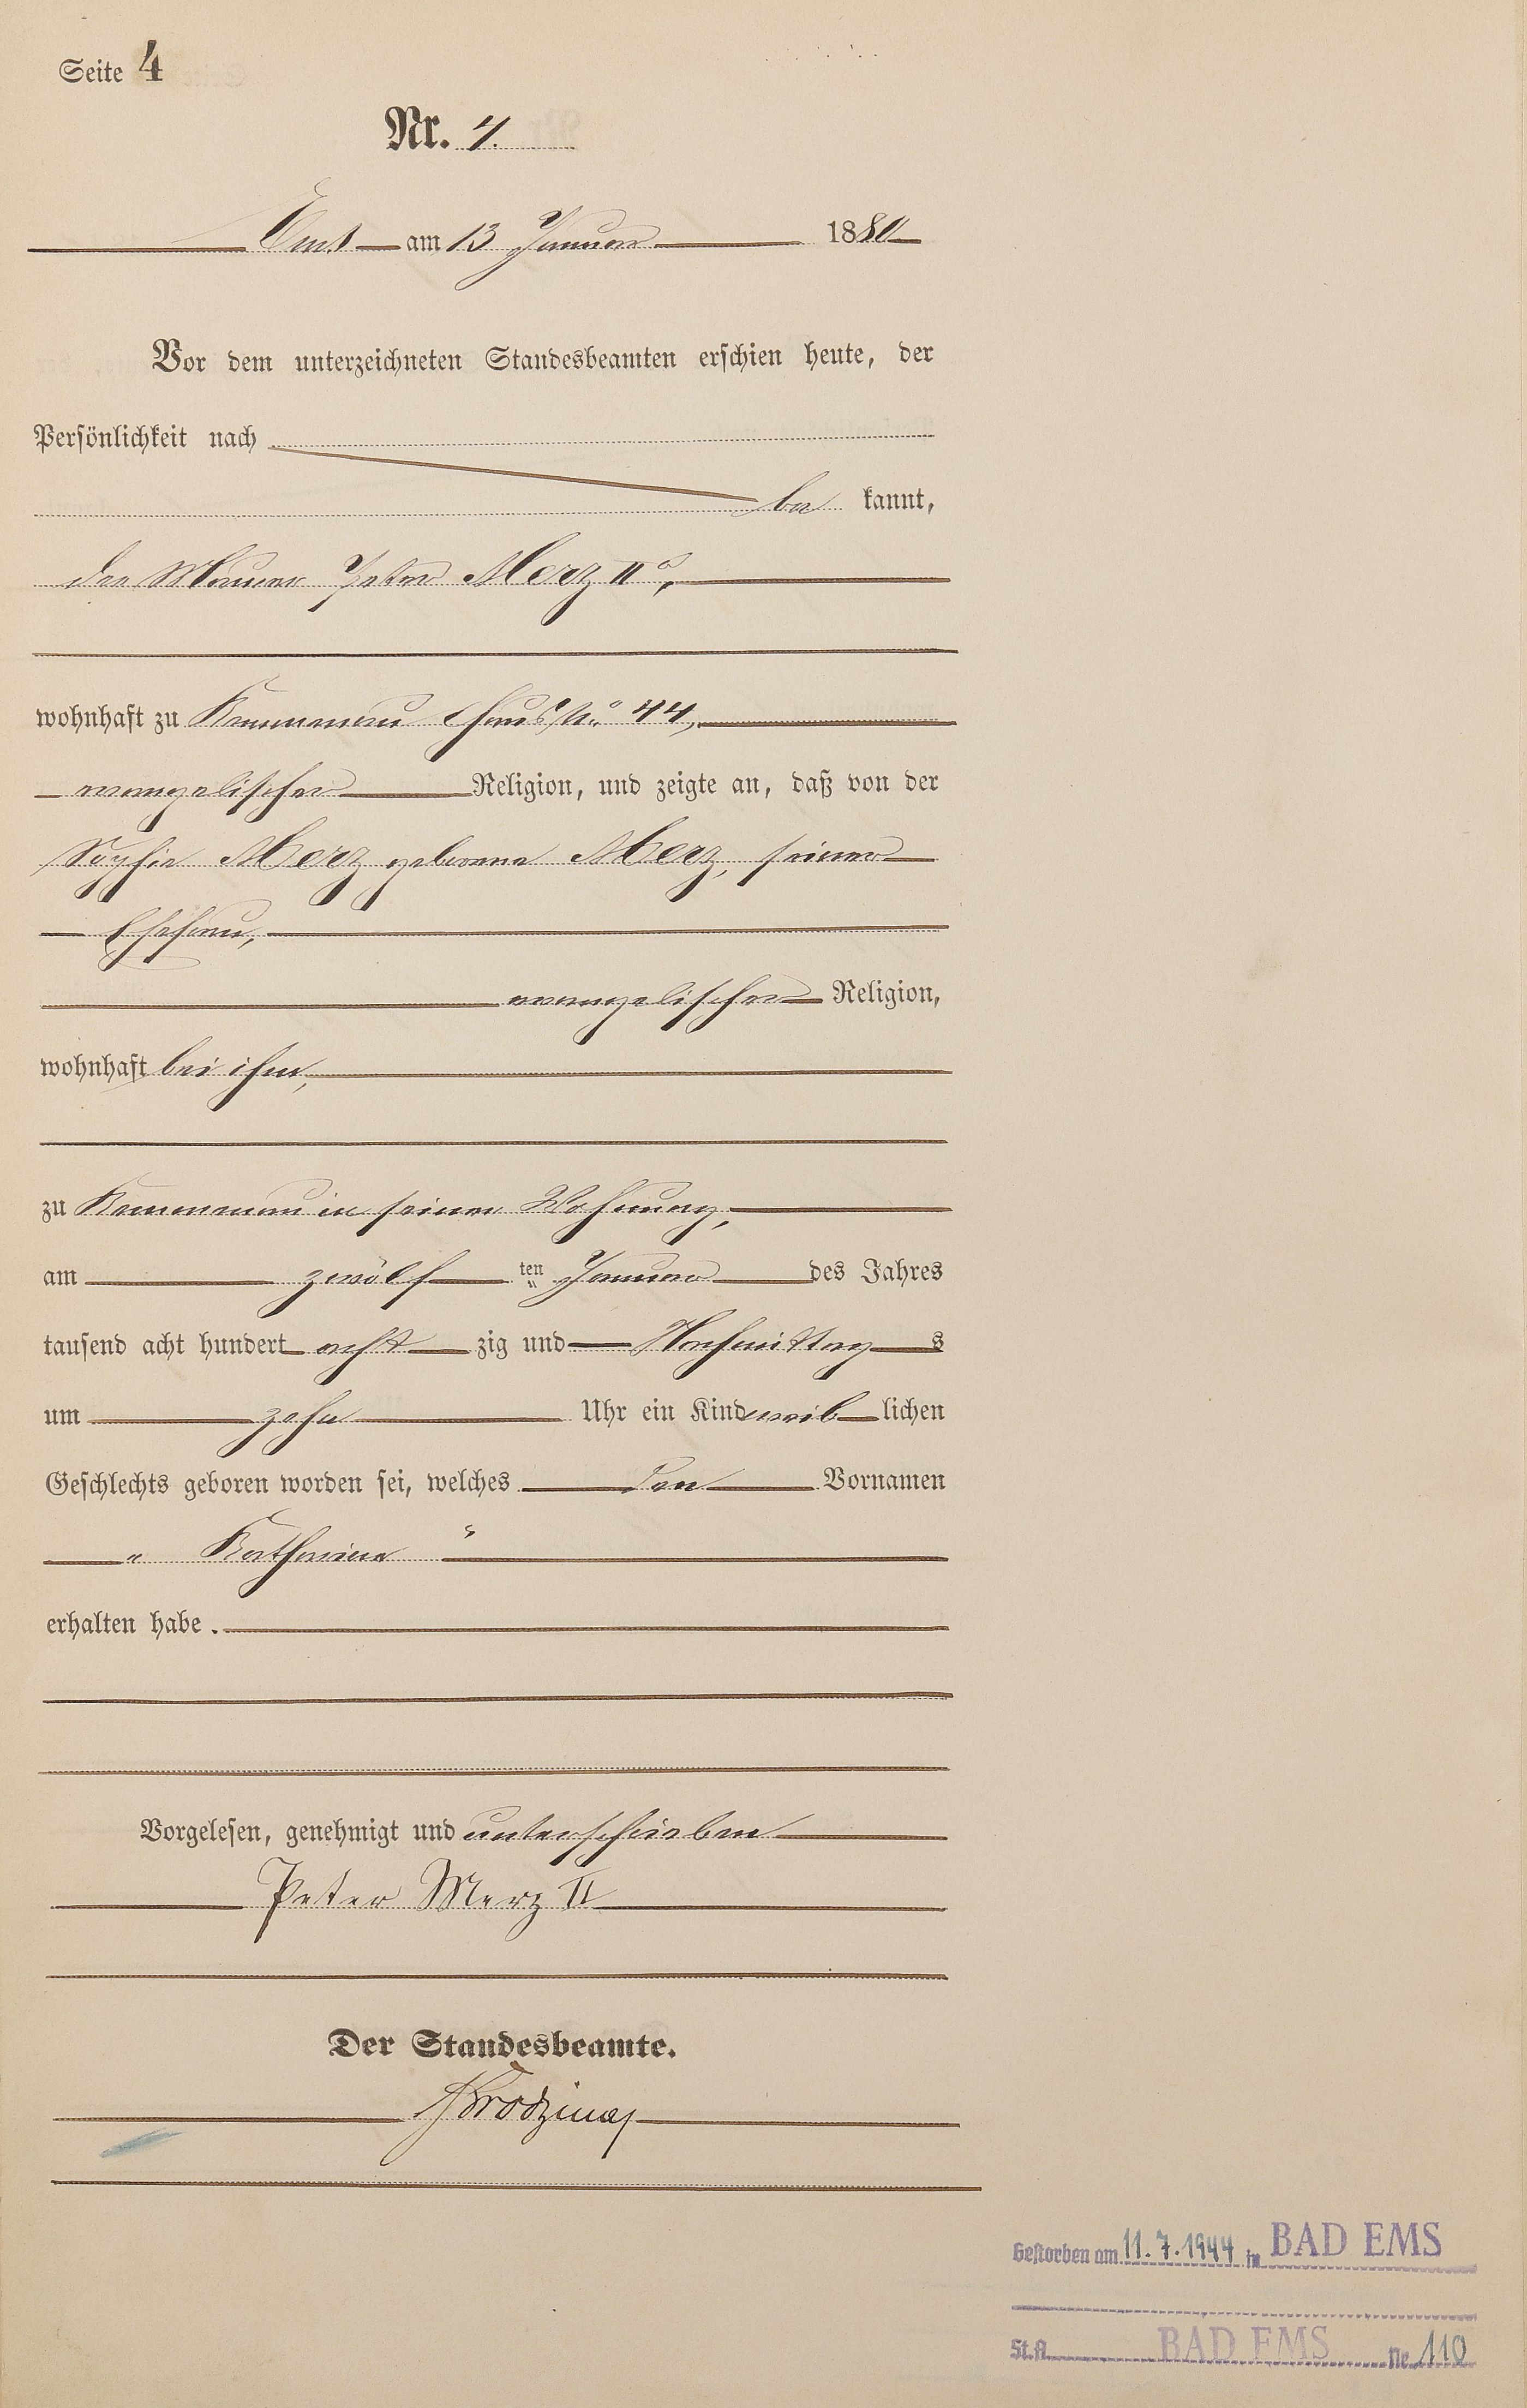 Seite 4
Nr. 4.
Ems am 13 Januar 1880
Vor dem unterzeichneten Standesbeamten erschien heute, der
Persönlichkeit nach
be kannt,
der Maurer Peter Merz IIr,
wohnhaft zu Kemmenau Haus No 44,
evangelischer Religion, und zeigte an, daß von der
Sophie Merz geborene Merz, seiner
Ehefrau,
evangelischer Religion,
wohnhaft bei ihm,
zu Kemmenau in seiner Wohnung,
am zwölf ten Januar des Jahres
tausend acht hundert acht zig und Nachmittag s
um zehn Uhr ein Kind weib lichen
Geschlechts geboren worden sei, welches den Vornamen
„ Katharina “
erhalten habe.
Vorgelesen, genehmigt und unterschrieben
Peter Merz II
Der Standesbeamte.
Gestorben am 11.7.1944 in BAD EMS
St.A. BAD EMS Nr. 110